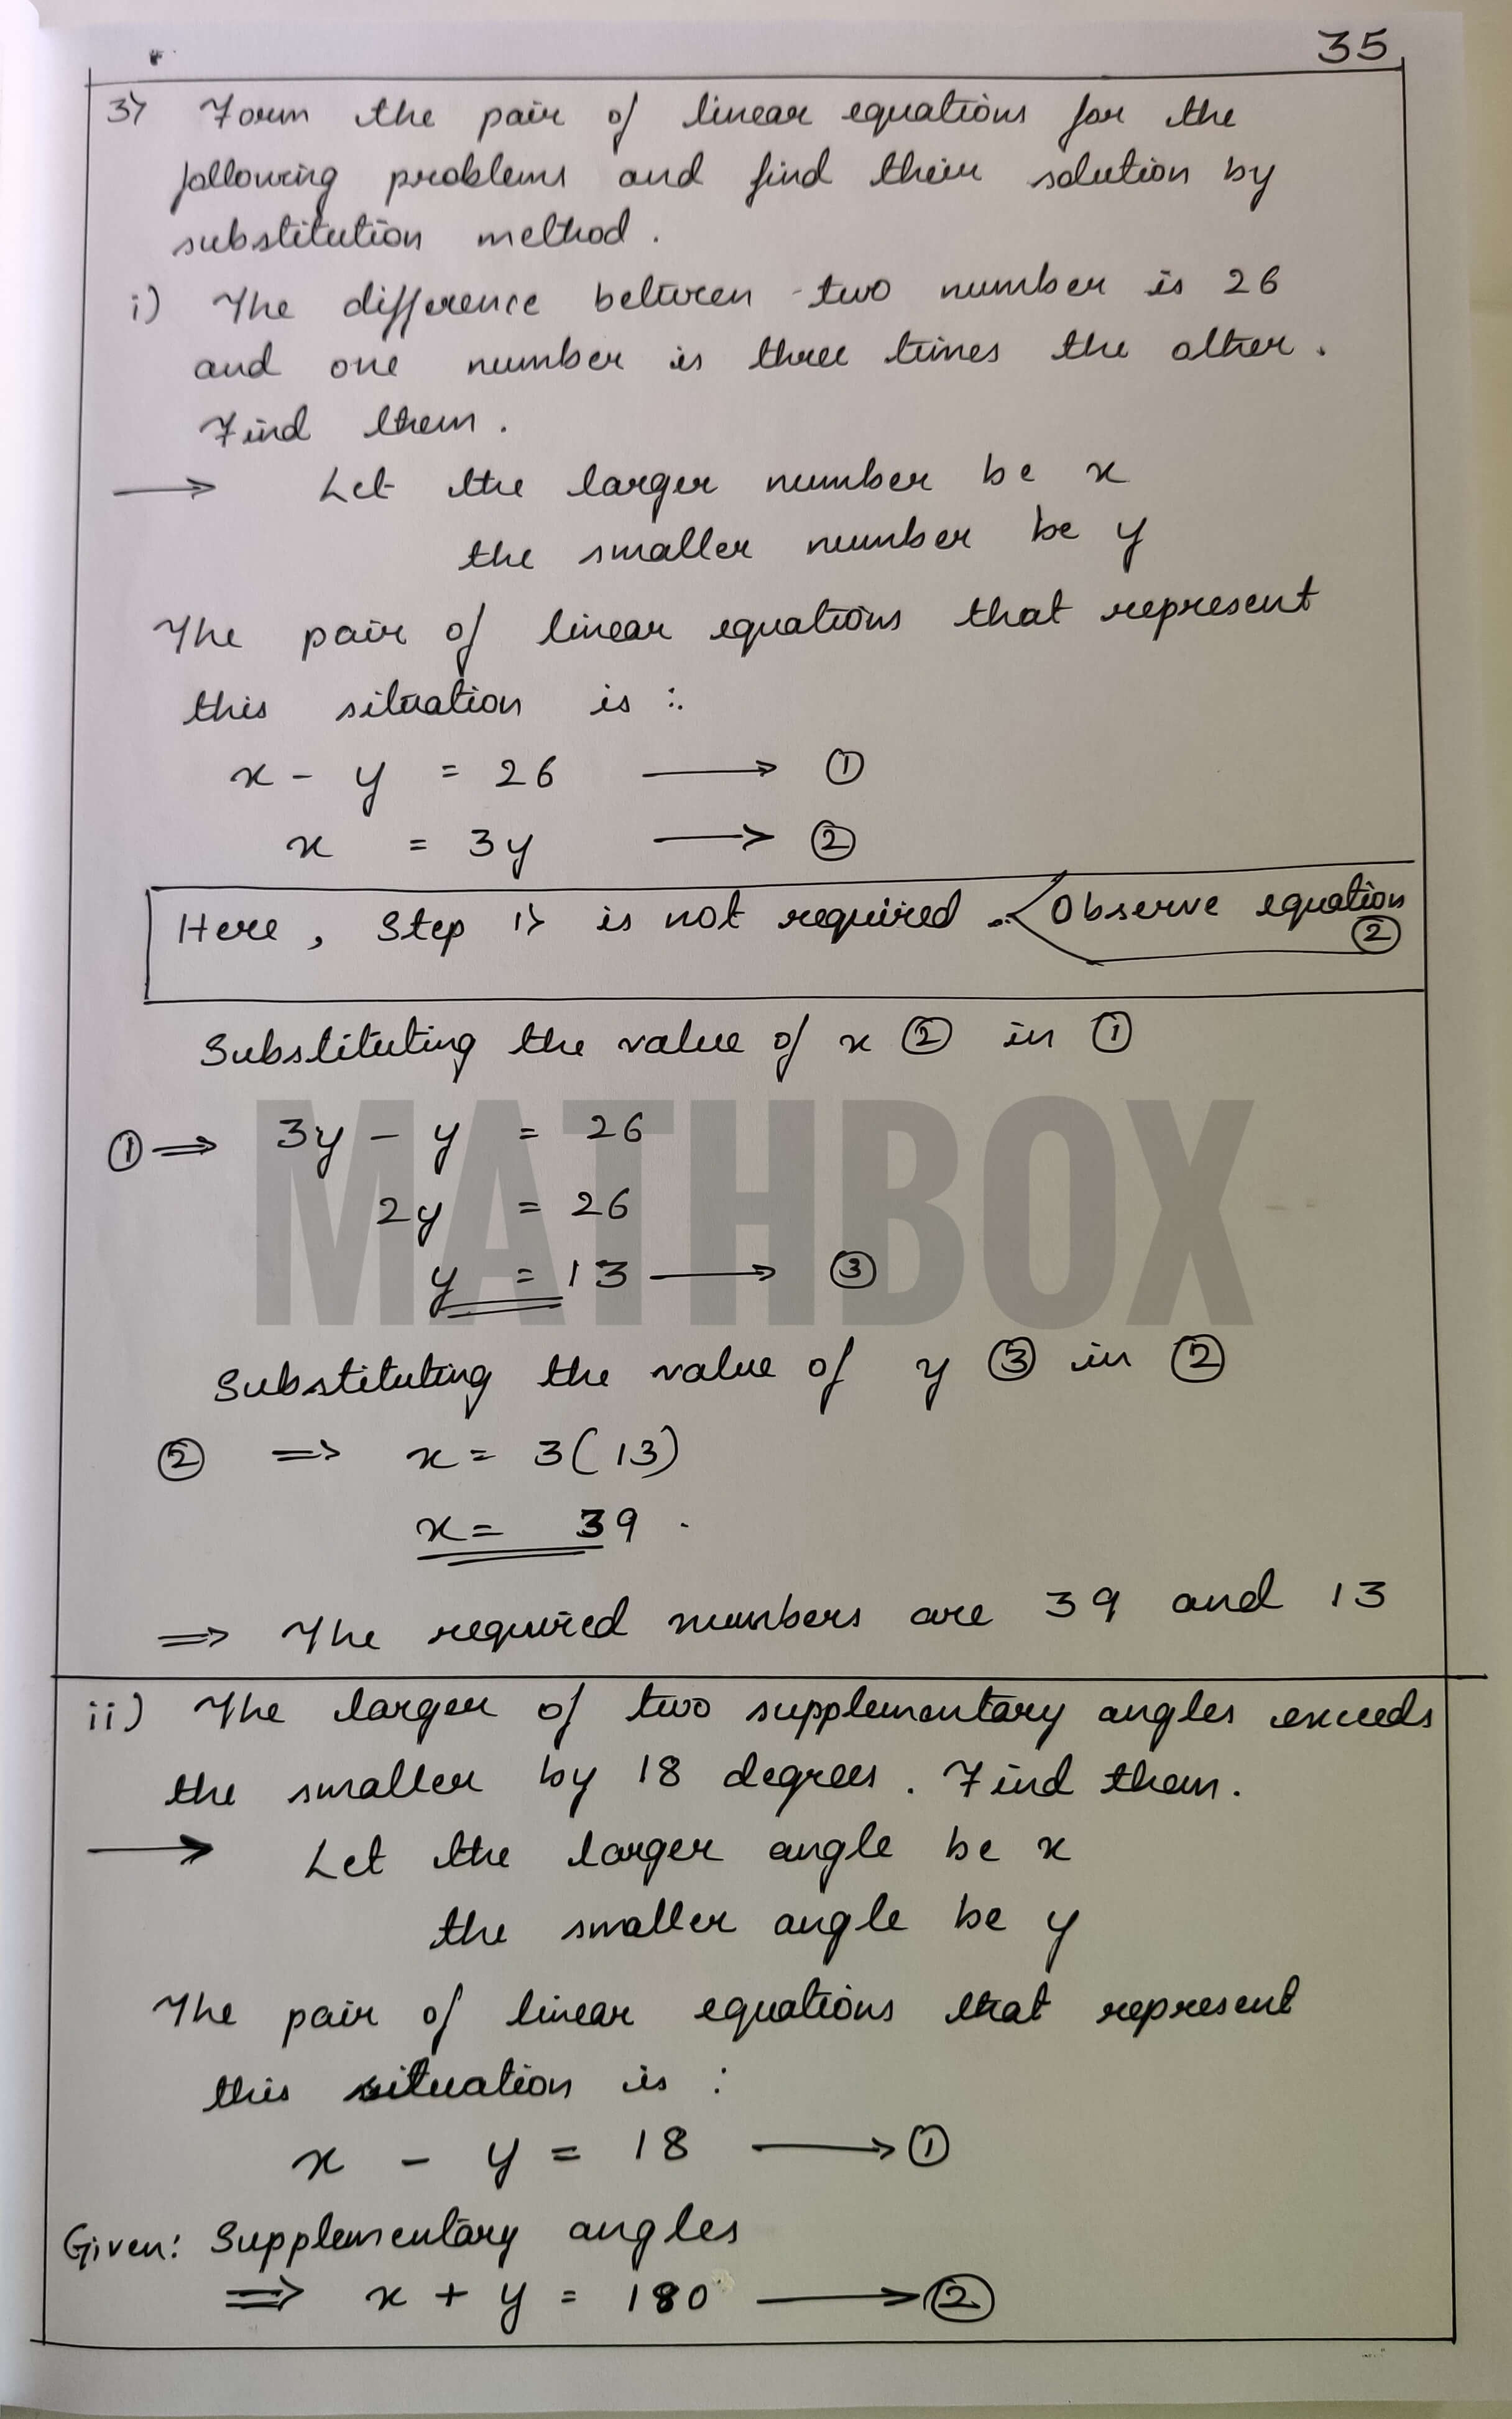 35
3) Form the pair of linear equations for the
following problems and find their solution by
substitution method.
i) The difference between two number is 26
and one number is three times the other.
Find them.
→ Let the larger number be x
the smaller number be y
The pair of linear equations that represent
this situation is :
x - y = 26 → ①
x = 3y → ②
Here, Step 1) is not required. Observe equation ②
Substituting the value of x ② in ①
① ⇒ 3y - y = 26
2y = 26
y = 13 → ③
Substituting the value of y ③ in ②
② ⇒ x = 3(13)
x = 39.
⇒ The required numbers are 39 and 13
ii) The larger of two supplementary angles exceeds
the smaller by 18 degrees. Find them.
→ Let the larger angle be x
the smaller angle be y
The pair of linear equations that represent
this situation is :
x - y = 18 → ①
Given: Supplementary angles
⇒ x + y = 180 → ②
MATHBOX